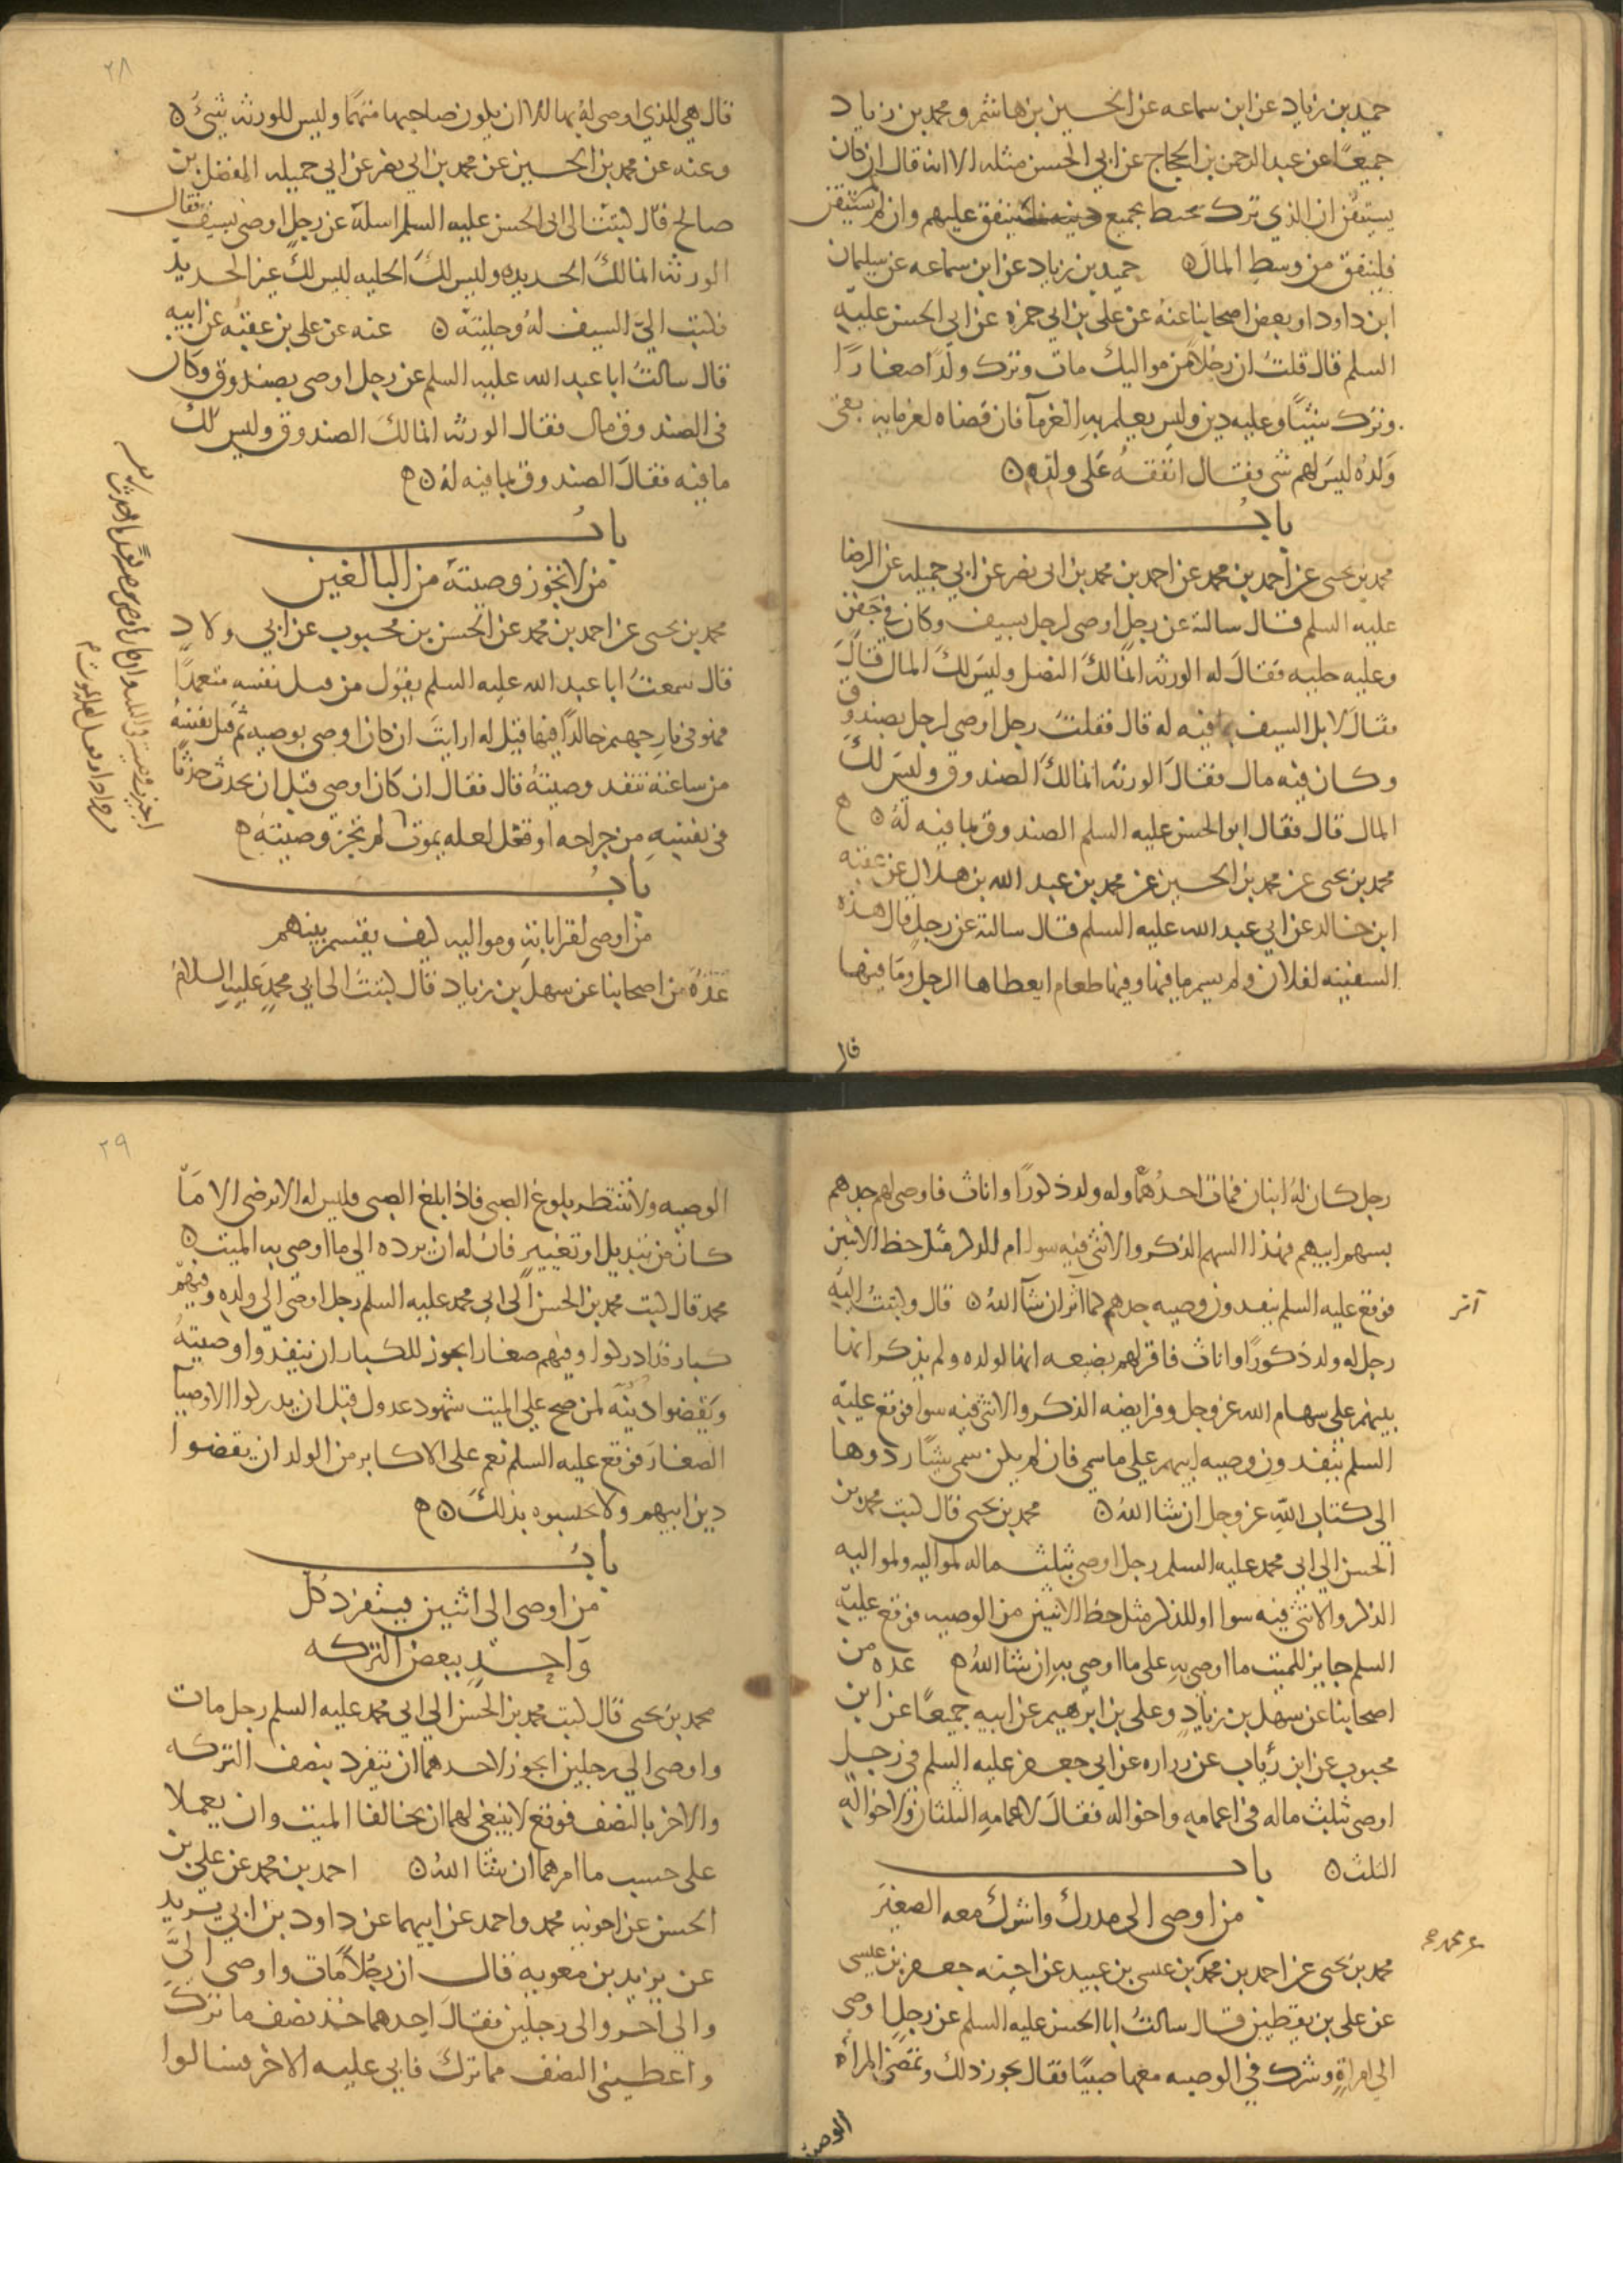 حميد بن زياد عن ابن سماعه عن الحسين بن هاشم و محمد بن زياد
جميعًا عن عبد الرحمن بن الحجاج عن ابي الحسن مثله الا انه قال ان كان
يستيقن ان الذي ترك يحيط بجميع دينه فلا ينفق عليهم وان لم يستيقن
فلينفق من وسط المال ۞ حميد بن زياد عن ابن سماعه عن سليمان
ابن داود او بعض اصحابنا عنه عن علي بن ابي حمزه عن ابي الحسن عليه
السلم قال قلت ان رجلاً من مواليك مات وترك ولدًا صغارًا
وترك شيئًا وعليه دين وليس يعلم به الغرمآ فان قضاه لغرمايه بقى
ولده ليس لهم شى فقال انفقه على ولده ۞
باب
محمد بن يحيى عن احمد بن محمد عن احمد بن محمد بن ابى نصر عن ابي جميله عن الرضا
عليه السلم قال سالته عن رجل اوصى لرجل بسيف وكان في جفن
وعليه حليه فقال له الورثه انما لك النصل وليس لك المال قال
فقال لا بل السيف بما فيه له قال فقلت رجل اوصى لرجل بصندوق
وكان فيه مال فقال الورثه انما لك الصندوق وليس لك
المال قال فقال ابو الحسن عليه السلم الصندوق بما فيه له ۞ ح
محمد بن يحيى عن محمد بن الحسين عن محمد بن عبد الله بن هلال عن عقبه
ابن خالد عن ابي عبد الله عليه السلم قال سالته عن رجل قال هذه
السفينه لفلان ولم يسم ما فيها وفيها طعام ايعطاها الرجل وما فيها
قال
٢٨
قال هي للذي اوصى له بها الا ان يكون صاحبها متهمًا وليس للورثه شئ ۞
وعنه عن محمد بن الحسين عن محمد بن ابي نصر عن ابي جميله المفضل بن
صالح قال كتبت الى ابى الحسن عليه السلم اسله عن رجل اوصى بسيف فقال
الورثه انما لك الحديده وليس لك الحليه ليس لك غير الحديد
فكتب اليّ السيف له وحليته ۞ عنه عن علي بن عقبه عن ابيه
قال سالت ابا عبد الله عليه السلم عن رجل اوصى بصندوق وكان
فى الصندوق مال فقال الورثه انما لك الصندوق وليس لك
ما فيه فقال الصندوق بما فيه له ۞ ح
باب
من لا تجوز وصيته من البالغين
محمد بن يحيى عن احمد بن محمد عن الحسن بن محبوب عن ابي ولاد
قال سمعت ابا عبد الله عليه السلم يقول من قتل نفسه متعمدًا
فهو فى نار جهنم خالدًا فيها قيل له ارايت ان كان اوصى بوصيه ثم قتل نفسه
من ساعته تنفد وصيته قال فقال ان كان اوصى قبل ان يحدث حدثًا
فى نفسه من جراحه او فعل لعله يموت لم تجز وصيته ح
باب
من اوصى لقراباته ومواليه كيف يقسم بينهم
عدة من اصحابنا عن سهل بن زياد قال كتبت الى ابي محمد عليه السلام
رجل كان له ابنان فمات احدهما وله ولد ذكورًا واناث فاوصى لهم جدهم
بسهم ابيهم فهذا السهم الذكر والانثى فيه سوا ام للذكر مثل حظ الانثيين
فوقع عليه السلم ينفدون وصيه جدهم كما اثر ان شآ الله ۞ قال وكتبت اليه
آمر
رجل له ولد ذكورًا واناث فاقر لهم بضيعه انها لولده ولم يذكر انها
بينهم على سهام الله عز وجل وفرايضه الذكر والانثى فيه سوا فوقع عليه
السلم ينفدون وصيه ابيهم على ما سمى فان لم يكن سمى شيئًا ردوها
الى كتاب الله عز وجل ان شا الله ۞ محمد بن يحيى قال كتب محمد بن
الحسن الى ابى محمد عليه السلم رجل اوصى بثلث ماله لمواليه ولموالياته
الذكر والانثى فيه سوا او للذكر مثل حظ الانثيين من الوصيه فوقع عليه
السلم جايز للميت ما اوصى به على ما اوصى به ان شا الله ۞ عده من
اصحابنا عن سهل بن زياد وعلى بن ابرهيم عن ابيه جميعًا عن ابن
محبوب عن ابن رئاب عن زراره عن ابي جعفر عليه السلم في رجل
اوصى بثلث ماله فى اعمامه واخواله فقال لاعمامه الثلثان ولاخواله
الثلث ۞ باب
من اوصى الى مدرك واشرك معه الصغير
محمد بن يحيى عن احمد بن محمد بن عيسى بن عبيد عن اخيه جعفر بن عيسى
عن على بن يقطين قال سالت ابا الحسن عليه السلم عن رجل اوصى
الى امراة وشرك فى الوصيه معها صبيًا فقال يجوز ذلك وتمضى المرأه
الوصيه
٢٩
الوصيه ولا تنتظر بلوغ الصبى فاذا بلغ الصبى فليس له الا يرضى الا ما
كان من تبديل او تغيير فان له ان يرده الى ما اوصى به الميت ۞
محمد قال كتب محمد بن الحسن الى ابى محمد عليه السلم رجل اوصى الى ولده وفيهم
كبار قد ادركوا وفيهم صغار ايجوز للكبار ان ينفذوا وصيته
ويقضوا دينه لمن صح على الميت شهود عدول قبل ان يدركوا الاوصيآ
الصغار فوقع عليه السلم نعم على الاكابر من الولد ان يقضوا
دين ابيهم ولا يحبسوه بذلك ۞ ح
باب
من اوصى الى اثنين فينفرد كل
واحد ببعض التركه
محمد بن يحيى قال كتب محمد بن الحسن الى ابى محمد عليه السلم رجل مات
واوصى الى رجلين ايجوز لاحدهما ان ينفرد بنصف التركه
والاخر بالنصف فوقع لا ينبغى لهما ان يخالفا الميت وان يعملا
على حسب ما امرهما ان شا الله ۞ احمد بن محمد عن على بن
الحسن عن اخويه محمد واحمد عن ابيهما عن داود بن ابى يزيد
عن يزيد بن معويه قال ان رجلاً مات واوصى الىّ
والى اخر والى رجلين فقال احدهما خذ نصف ما ترك
واعطنى النصف مما ترك فابى عليه الاخر فسالوا